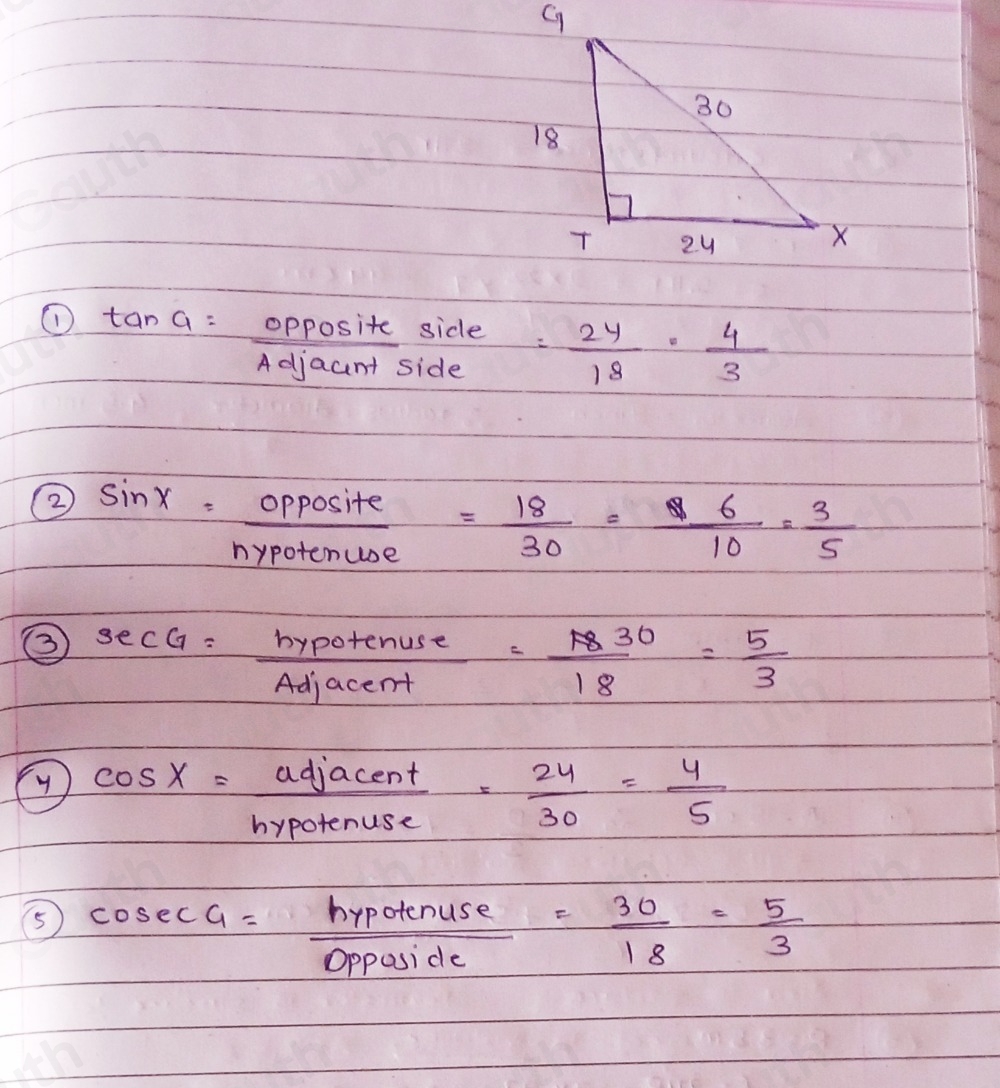 G
30
18
T 24 X
① tan G = opposite side / Adjacent side = 24/18 = 4/3
② Sin X = opposite / hypotenuse = 18/30 = 6/10 = 3/5
③ sec G = hypotenuse / Adjacent = 30/18 = 5/3
④ cos X = adjacent / hypotenuse = 24/30 = 4/5
⑤ cosec G = hypotenuse / Opposide = 30/18 = 5/3
Gauth